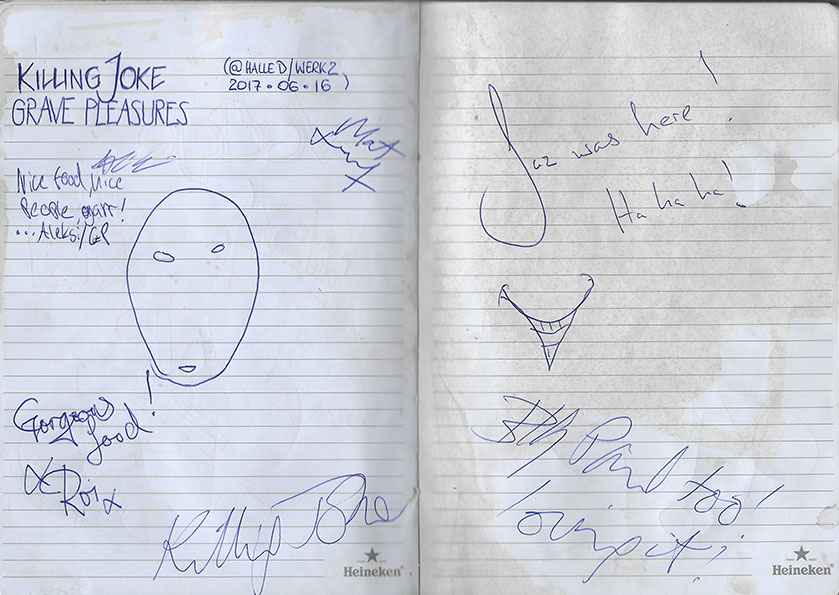 KILLING JOKE
GRAVE PLEASURES
(@HALLE D/WERK 2
2017·06·16)
Nice food, nice
People,
...Aleksi/GP
Gorgeous
food!
x Roi x
Killing Joke
Heineken
Jaz was here!
Ha ha ha!
Paul too!
Heineken